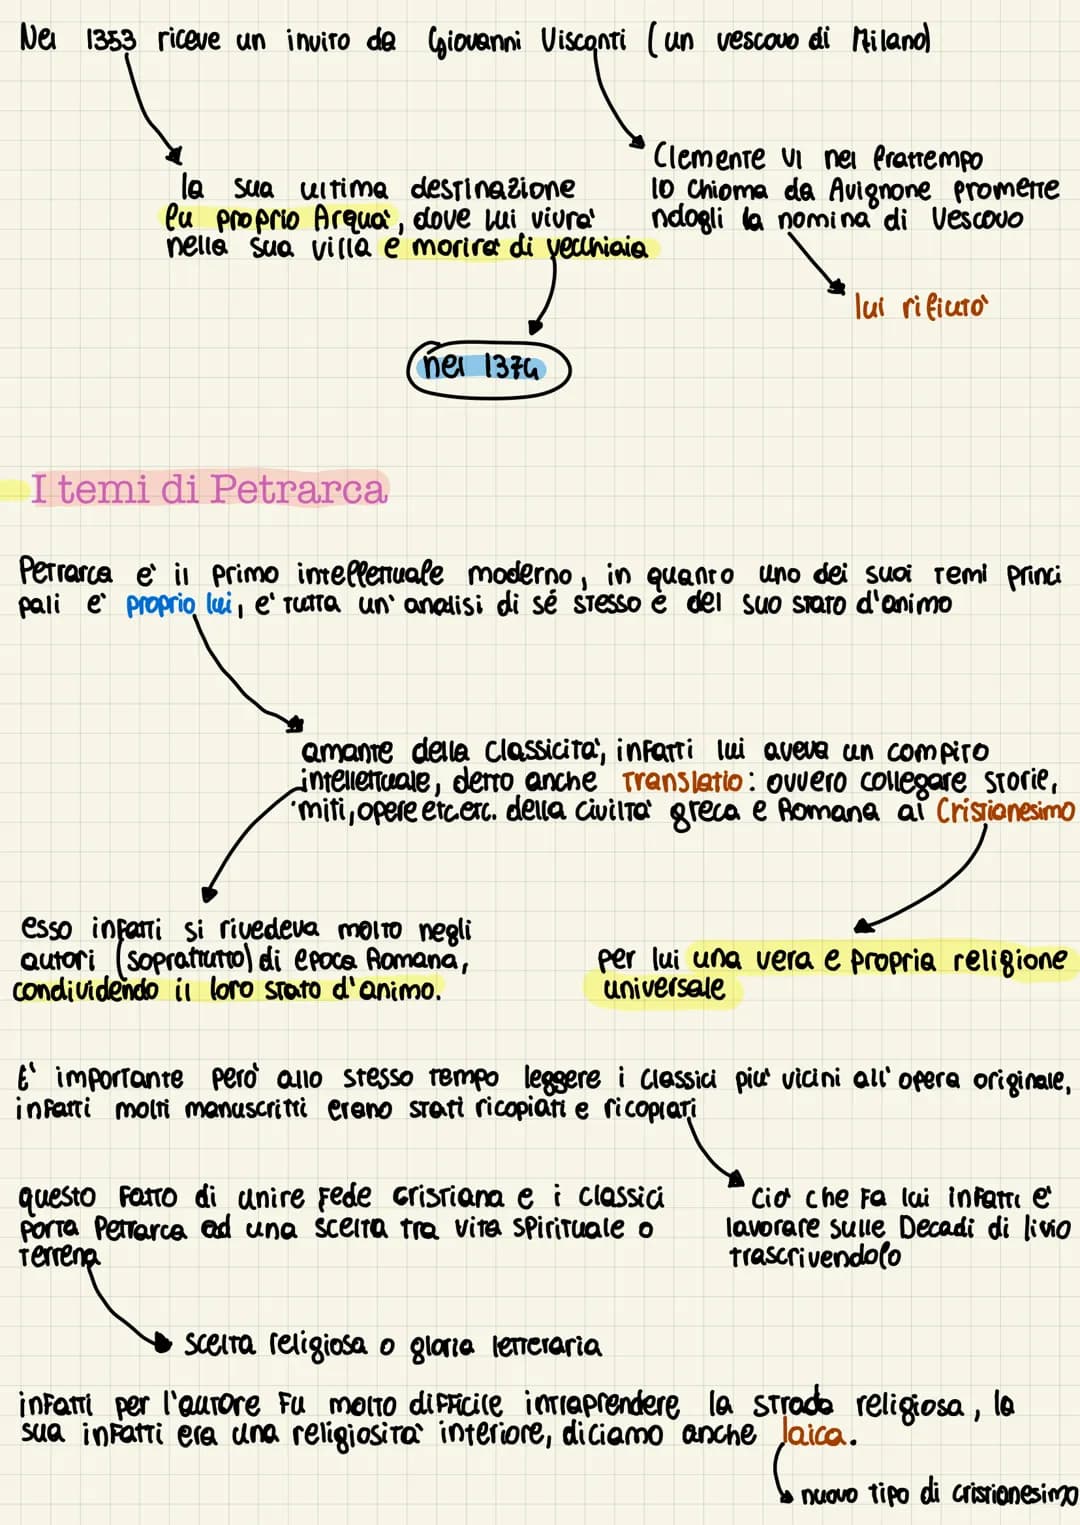 Nel 1353 riceve un invito da Giovanni Visconti (un vescovo di Milano)
Clemente VI nel frattempo
lo chioma da Avignone promette
ndogli la nomina di Vescovo
la sua ultima destinazione
fu proprio Arquà, dove lui vivrà
nella sua villa e morirà di vecchiaia
lui rifiutò
nel 1374
I temi di Petrarca
Petrarca è il primo intellettuale moderno, in quanto uno dei suoi temi princi
pali è proprio lui, è tutta un'analisi di sé stesso e del suo stato d'animo
amante della Classicità, infatti lui aveva un compito
intellettuale, detto anche Translatio: ovvero collegare storie,
miti, opere etc.etc. della civiltà greca e Romana al Cristianesimo
esso infatti si rivedeva molto negli
autori (soprattutto) di epoca Romana,
condividendo il loro stato d'animo.
per lui una vera e propria religione
universale
E' importante però allo stesso tempo leggere i Classici più vicini all'opera originale,
infatti molti manuscritti erano stati ricopiati e ricopiati
Ciò che fa lui infatti è
lavorare sulle Decadi di livio
trascrivendolo
questo fatto di unire fede cristiana e i classici
porta Petrarca ad una scelta tra vita spirituale o
terrena
scelta religiosa o gloria letteraria
infatti per l'autore fu molto difficile intraprendere la strada religiosa, la
sua infatti era una religiosità interiore, diciamo anche laica.
nuovo tipo di cristianesimo